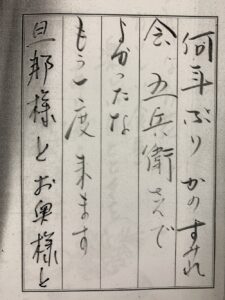 何年ぶりかのすみれ
会、五兵衛さんで
よかったな
もう一度来ます
旦那様とお奥様と